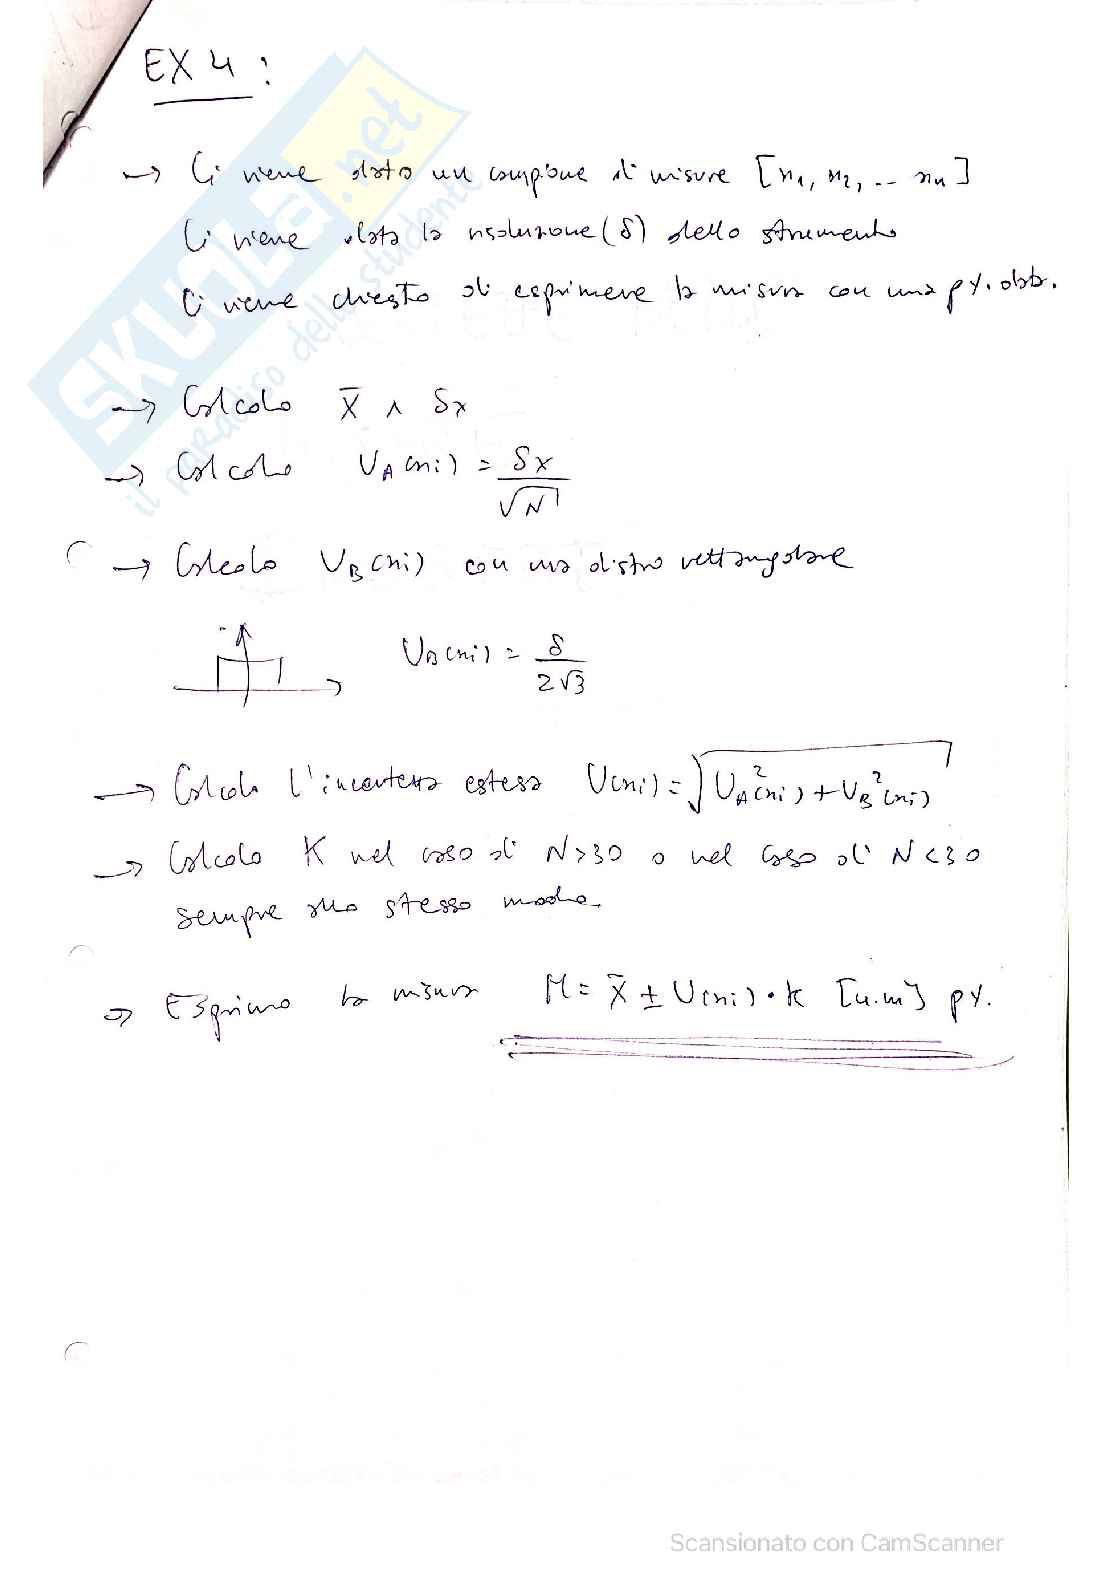 EX 4 :
→ Ci viene dato un campione di misure [x1, x2, .. xn]
Ci viene data la risoluzione (δ) dello strumento
Ci viene chiesto di esprimere la misura con una p%. data.
→ Calcolo x̄ ∧ Sx
→ Calcolo UA(xi) = Sx / √N
→ Calcolo UB(xi) con una distro rettangolare
UB(xi) = δ / 2√3
→ Calcolo l'incertezza estesa U(xi) = √(UA²(xi) + UB²(xi))
→ Calcolo K nel caso di N>30 o nel caso di N<30
sempre allo stesso modo.
→ Esprimo la misura M = x̄ ± U(xi) · k [u.m] p%.
SKUOLA.net
il paradiso dello studente
Scansionato con CamScanner